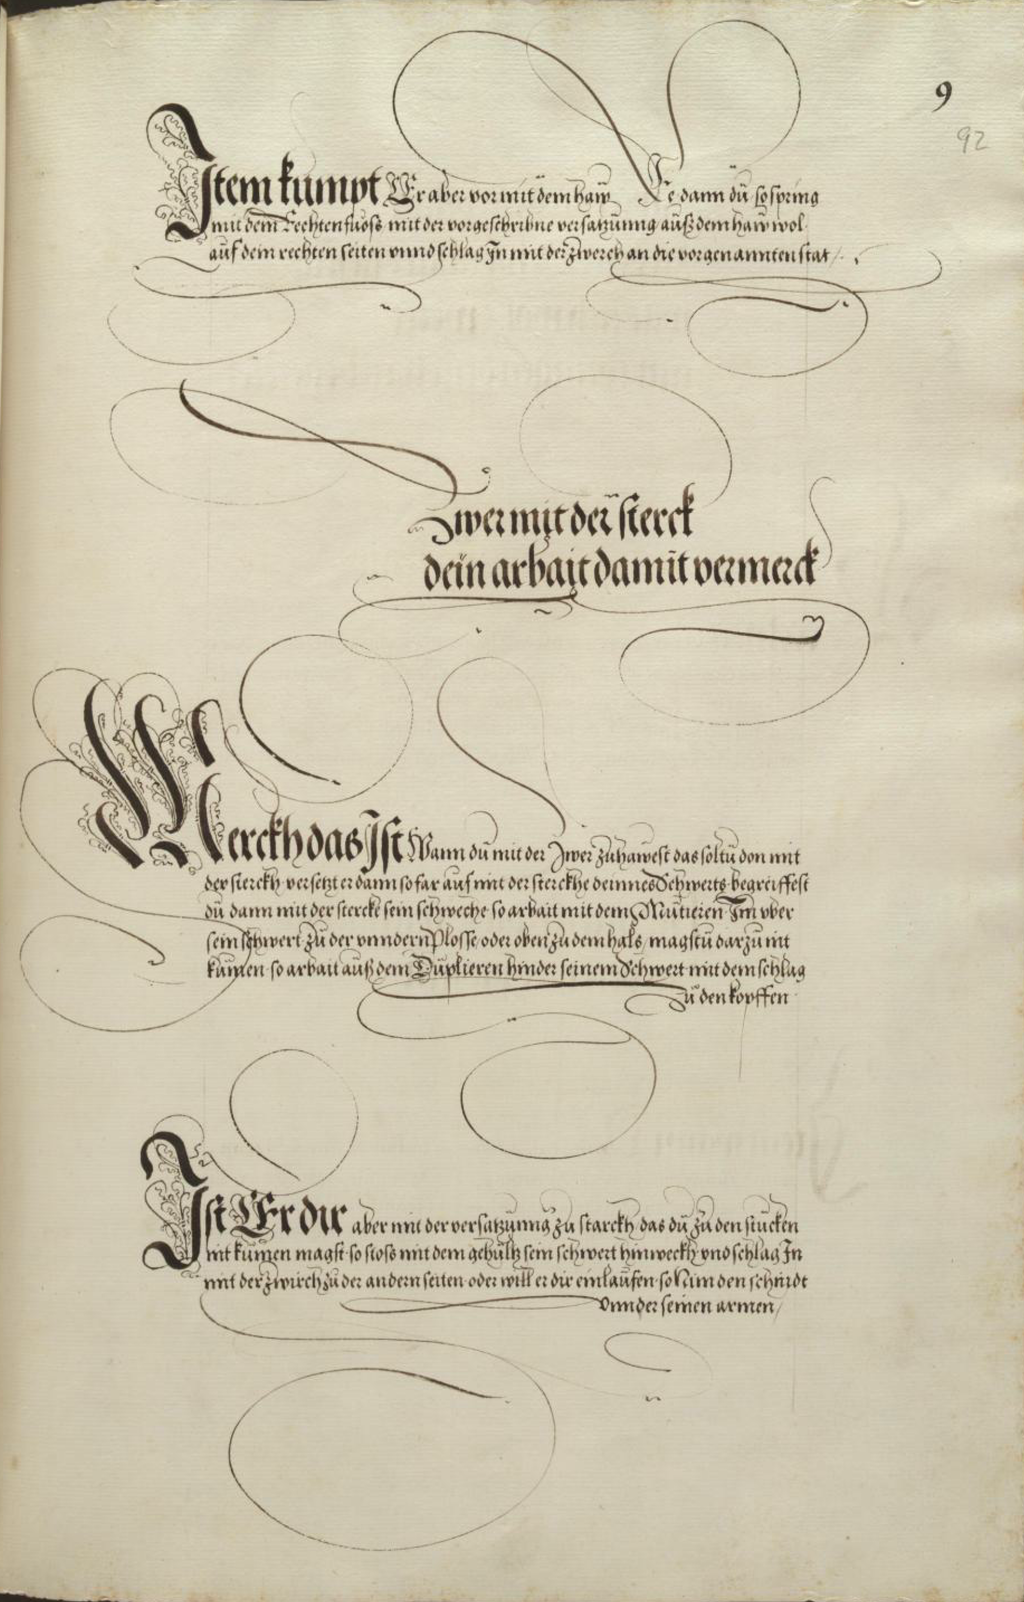 9
92
Item kumpt Er aber vor mit dem haw Ee dann dü so spring
mit dem Rechten fuoss mit der vorgeschribne versatzunng auß dem haw wol
auf dem rechten seiten vnnd schlag In mit der zwerch an die vorgenannten stat /
Zwer mit der sterck
dein arbait damit vermerck
Merckh das Ist Wann dü mit der Zwer zuhawest das soltu don mit
der sterckh versetzt er dann so far auf mit der sterckhe deinnes Schwerts begreiffest
dü dann mit der stercke sein schweche so arbait mit dem Mutieren Im vber
sein schwert zü der vnndern Plosse oder oben zü dem hals / magstü darzü nit
kümen so arbait auß dem Düplieren hinder seinem Schwert mit dem schlag
zü den kopffen
Ist Er dir aber mit der versatzunng zü starckh das dü zü den stucken
nit kumen magst so stoss mit dem gehültz sein schwert hinweckh vnd schlag In
mit der zwirch zü der andern seiten oder will er dir einlaufen so Nim den schnidt
vnnder seinen armen /